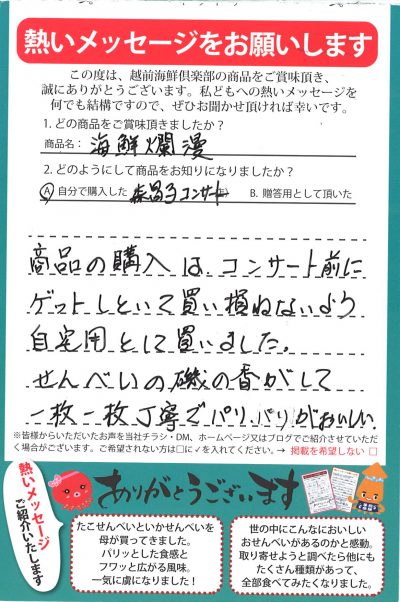 熱いメッセージをお願いします
この度は、越前海鮮倶楽部の商品をご賞味頂き、
誠にありがとうございます。私どもへの熱いメッセージを
何でも結構ですので、ぜひお聞かせ頂ければ幸いです。
1. どの商品をご賞味頂きましたか？
商品名： 海鮮爛漫
2. どのようにして商品をお知りになりましたか？
A 自分で購入した 森昌子コンサート B. 贈答用として頂いた
商品の購入は、コンサート前に
ゲットしといて買い損ねないよう
自宅用として買いました。
せんべいの磯の香がして
一枚一枚丁寧でパリパリがおいしい。
※皆様からいただいたお声を当社チラシ・DM、ホームページ又はブログでご紹介させていただ
く場合がございます。ご希望されない方は□に✓を入れてください。→ 掲載を希望しない □
熱いメッセージ
ご紹介いたします
ありがとうございます
たこせんべいといかせんべいを
母が買ってきました。
パリッとした食感と
フワッと広がる風味。
一気に虜になりました！
世の中にこんなにおいしい
おせんべいがあるのかと感動。
取り寄せようと調べたら他にも
たくさん種類があって、
全部食べてみたくなりました。